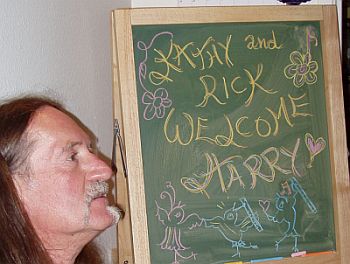 KATHY and
RICK
WELCOME
HARRY!